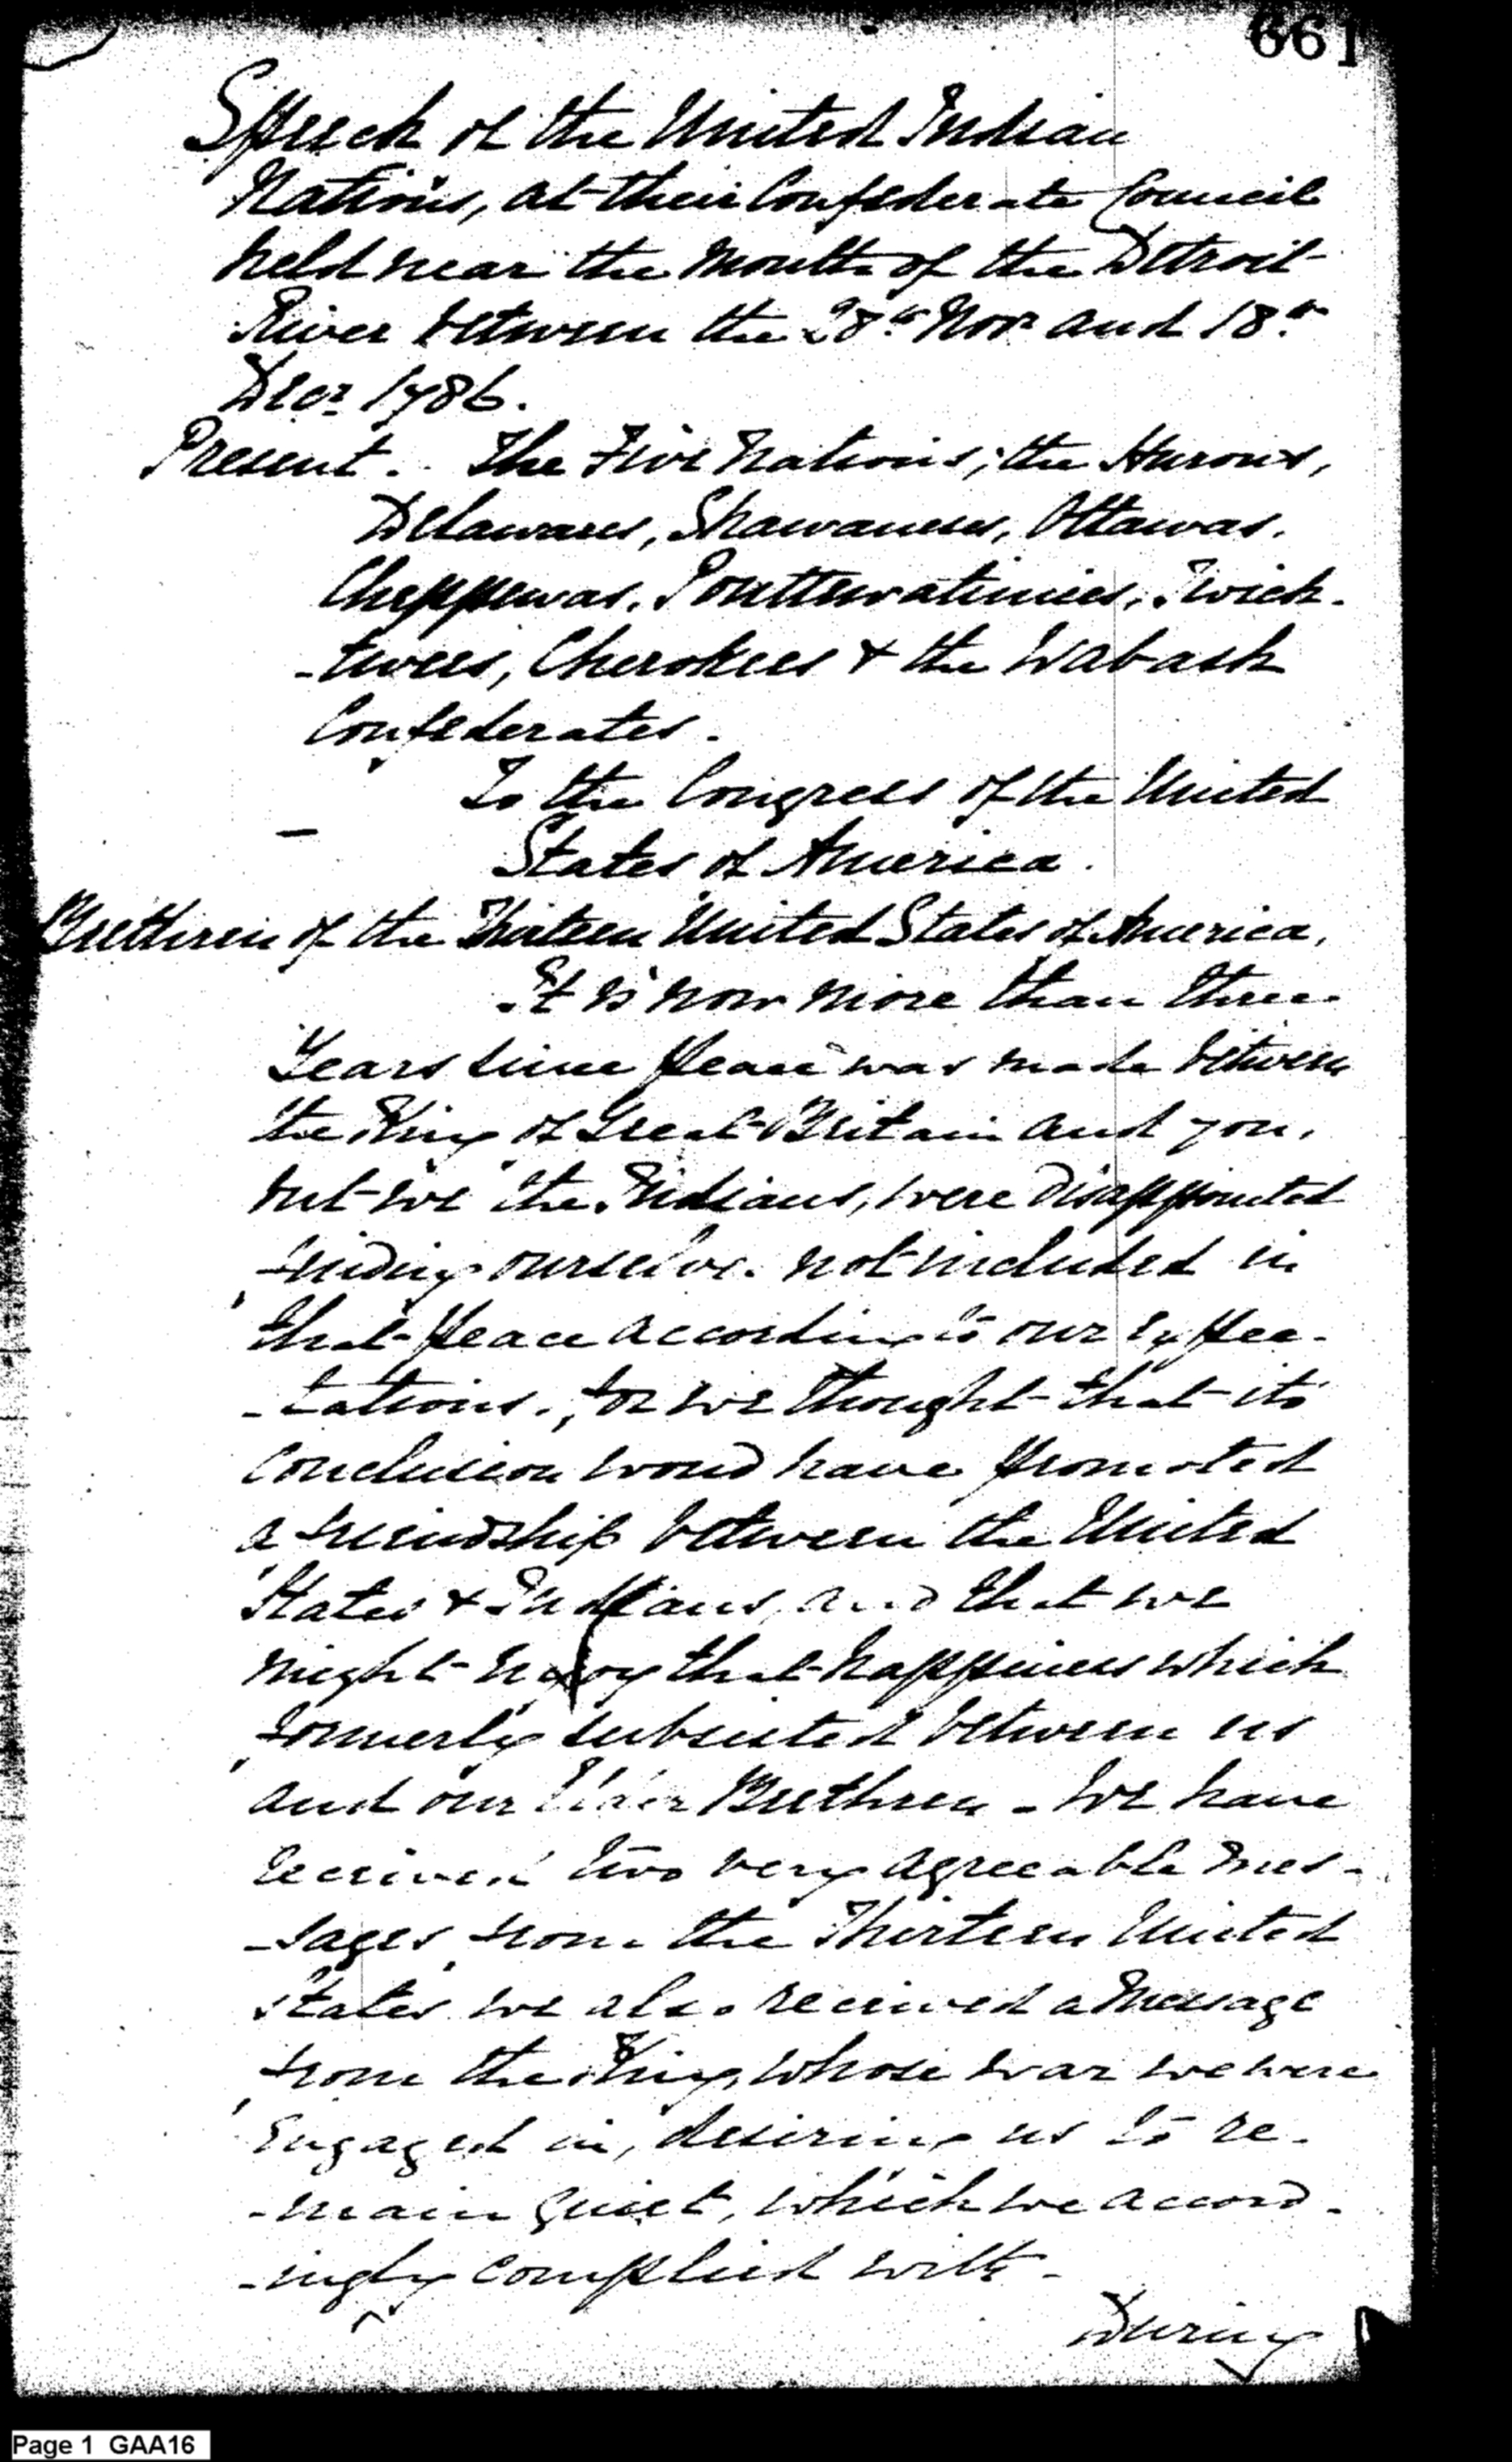 661
Speech of the United Indian
Nations, at their Confederate Council
held near the Mouth of the Detroit
River between the 28th Novr and 18th
Decr 1786.
Present. The Five Nations, the Hurons,
Delawares, Shawanese, Ottawas,
Cheppewas, Pouttewatimies, Twich-
-twees, Cherokees & the Wabash
Confederates.
To the Congress of the United
States of America.
Brethren of the Thirteen United States of America,
It is now more than three
Years since peace was made between
the King of Great Britain and you,
but we the Indians, were disappointed
finding ourselves not included in
that peace according to our expec-
-tations, for we thought that its
conclusion would have promoted
a friendship between the United
States & Indians, and that we
might enjoy that happiness which
formerly subsisted between us
and our Elder Brethren - We have
received two very agreeable mes-
-sages from the Thirteen United
States we also received a Message
from the King, whose war we were
Engaged in, desiring us to re-
-main quiet, which we accord-
-ingly complied with -
During
Page 1 GAA16